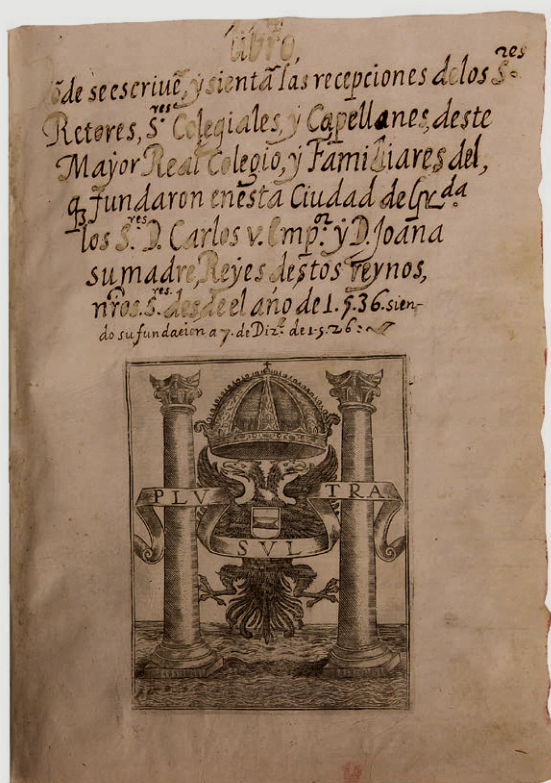 Libro,
dõde se escriuẽ, y sientã las recepciones de los S.res
Retores, S.res Colegiales, y Capellanes, deste
Mayor Real Colegio, y Familiares del,
q̃ fundaron en esta Ciudad de
los S.res D. Carlos v. Emp.or y D. Joana
su madre, Reyes destos reynos,
nr̃os. S.res desde el año de 1.5.36. sien-
do su fundacion a 7. de Diz.e de 1.5.26.
PLV
TRA
SVL